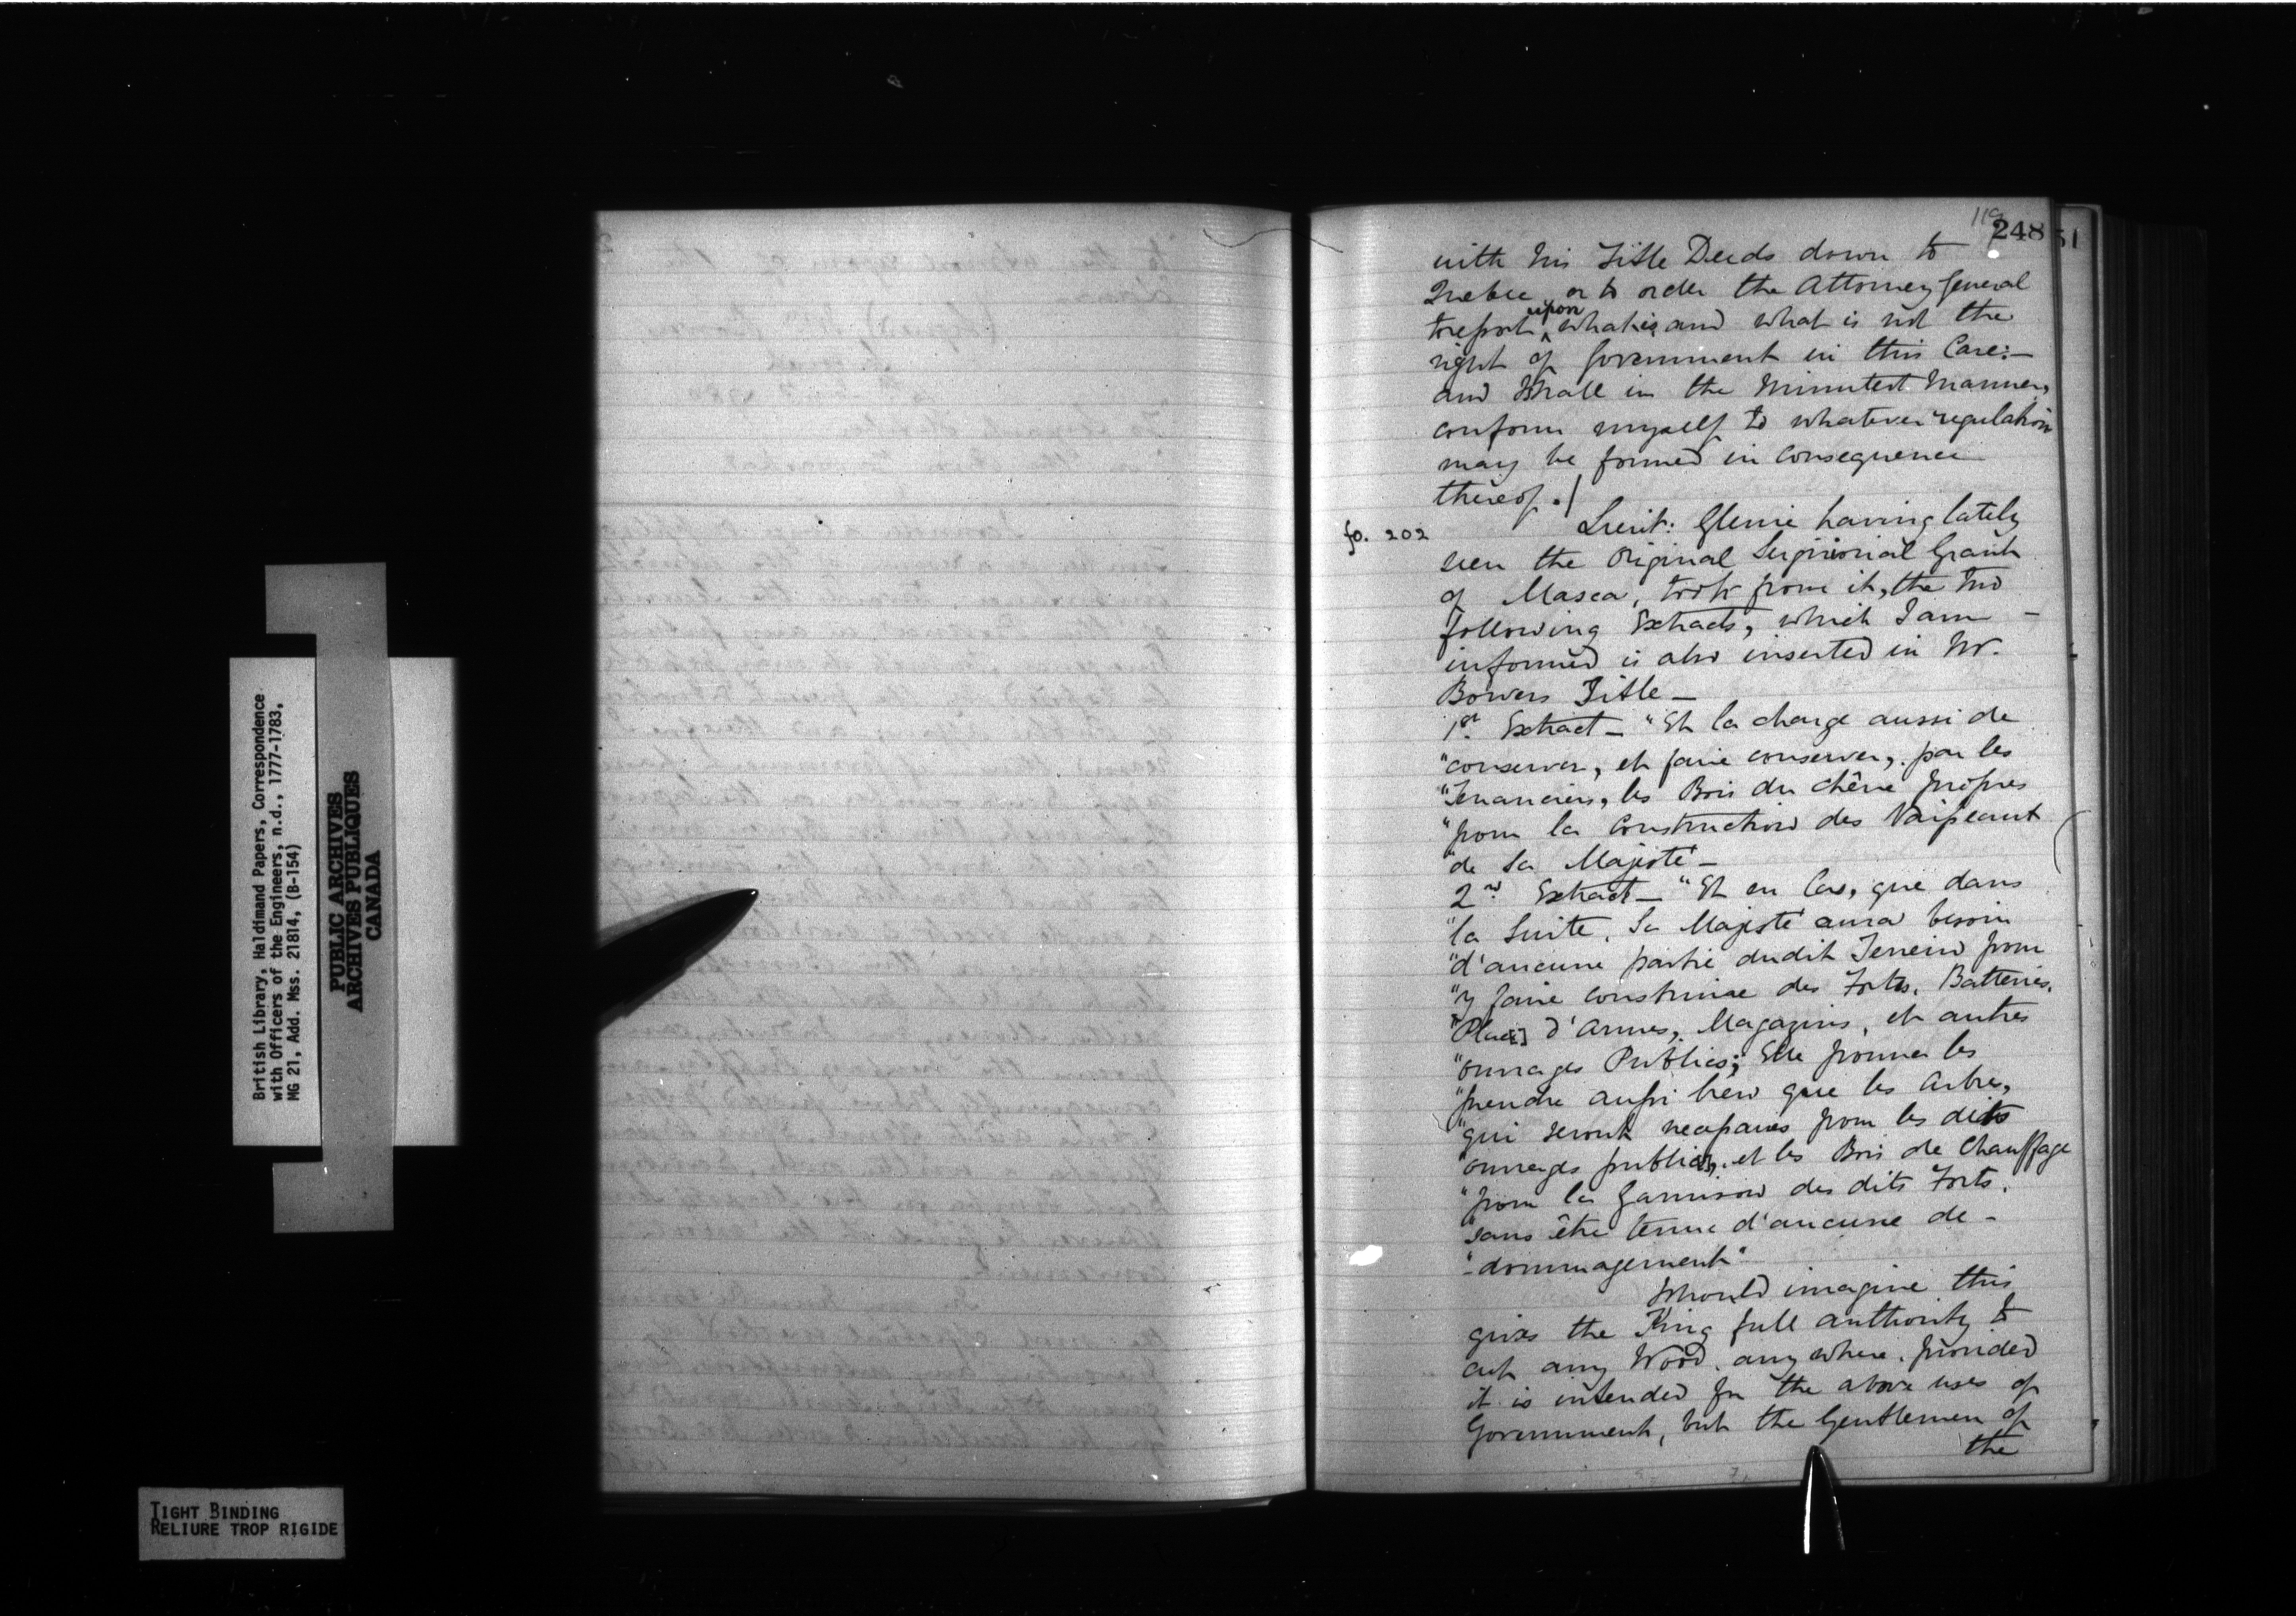 British Library, Haldimand Papers, Correspondence
with Officers of the Engineers, n.d., 1777-1783,
MG 21, Add. Mss. 21814, (B-154)
PUBLIC ARCHIVES
ARCHIVES PUBLIQUES
CANADA
TIGHT BINDING
RELIURE TROP RIGIDE
119
248
51
with his Title Deeds down to
Quebec or to order the Attorney General
to report upon what is and what is not the
right of Government in this Case:—
and I shall in the minutest manner,
conform myself to whatever regulation
may be formed in consequence
thereof./
fo. 202
Lieut: Glenie having lately
seen the Original Seignorial Grant
of Masca, took from it, the two
following Extracts, which I am –
informed is also inserted in Mr.
Bowers Title –
1st Extract – "Et la charge aussi de
"conserver, et faire conserver, par les
"Tenanciers, les Bois du chêne propres
"pour la Construction des Vaisseaux
"de Sa Majesté –
2nd Extract – "Et en Cas, que dans
"la Suite, Sa Majesté aura besoin
"d'aucune partie dudit Terrein pour
"y faire construire des Forts, Batteries,
"Place[s] d'Armes, Magazins, et autres
"ouvrages Publics; Elle pourra les
"prendre aussi bien que les Arbres,
"qui seront necessaires pour les dits
"ouvrages publics, et les Bois de Chauffage
"pour la Garnison des dits Forts,
"sans être tenue d'aucune de-
"-dommagement"
I should imagine this
gives the King full authority to
cut any Wood, any where, provided
it is intended for the above uses of
Government, but the Gentlemen of
the